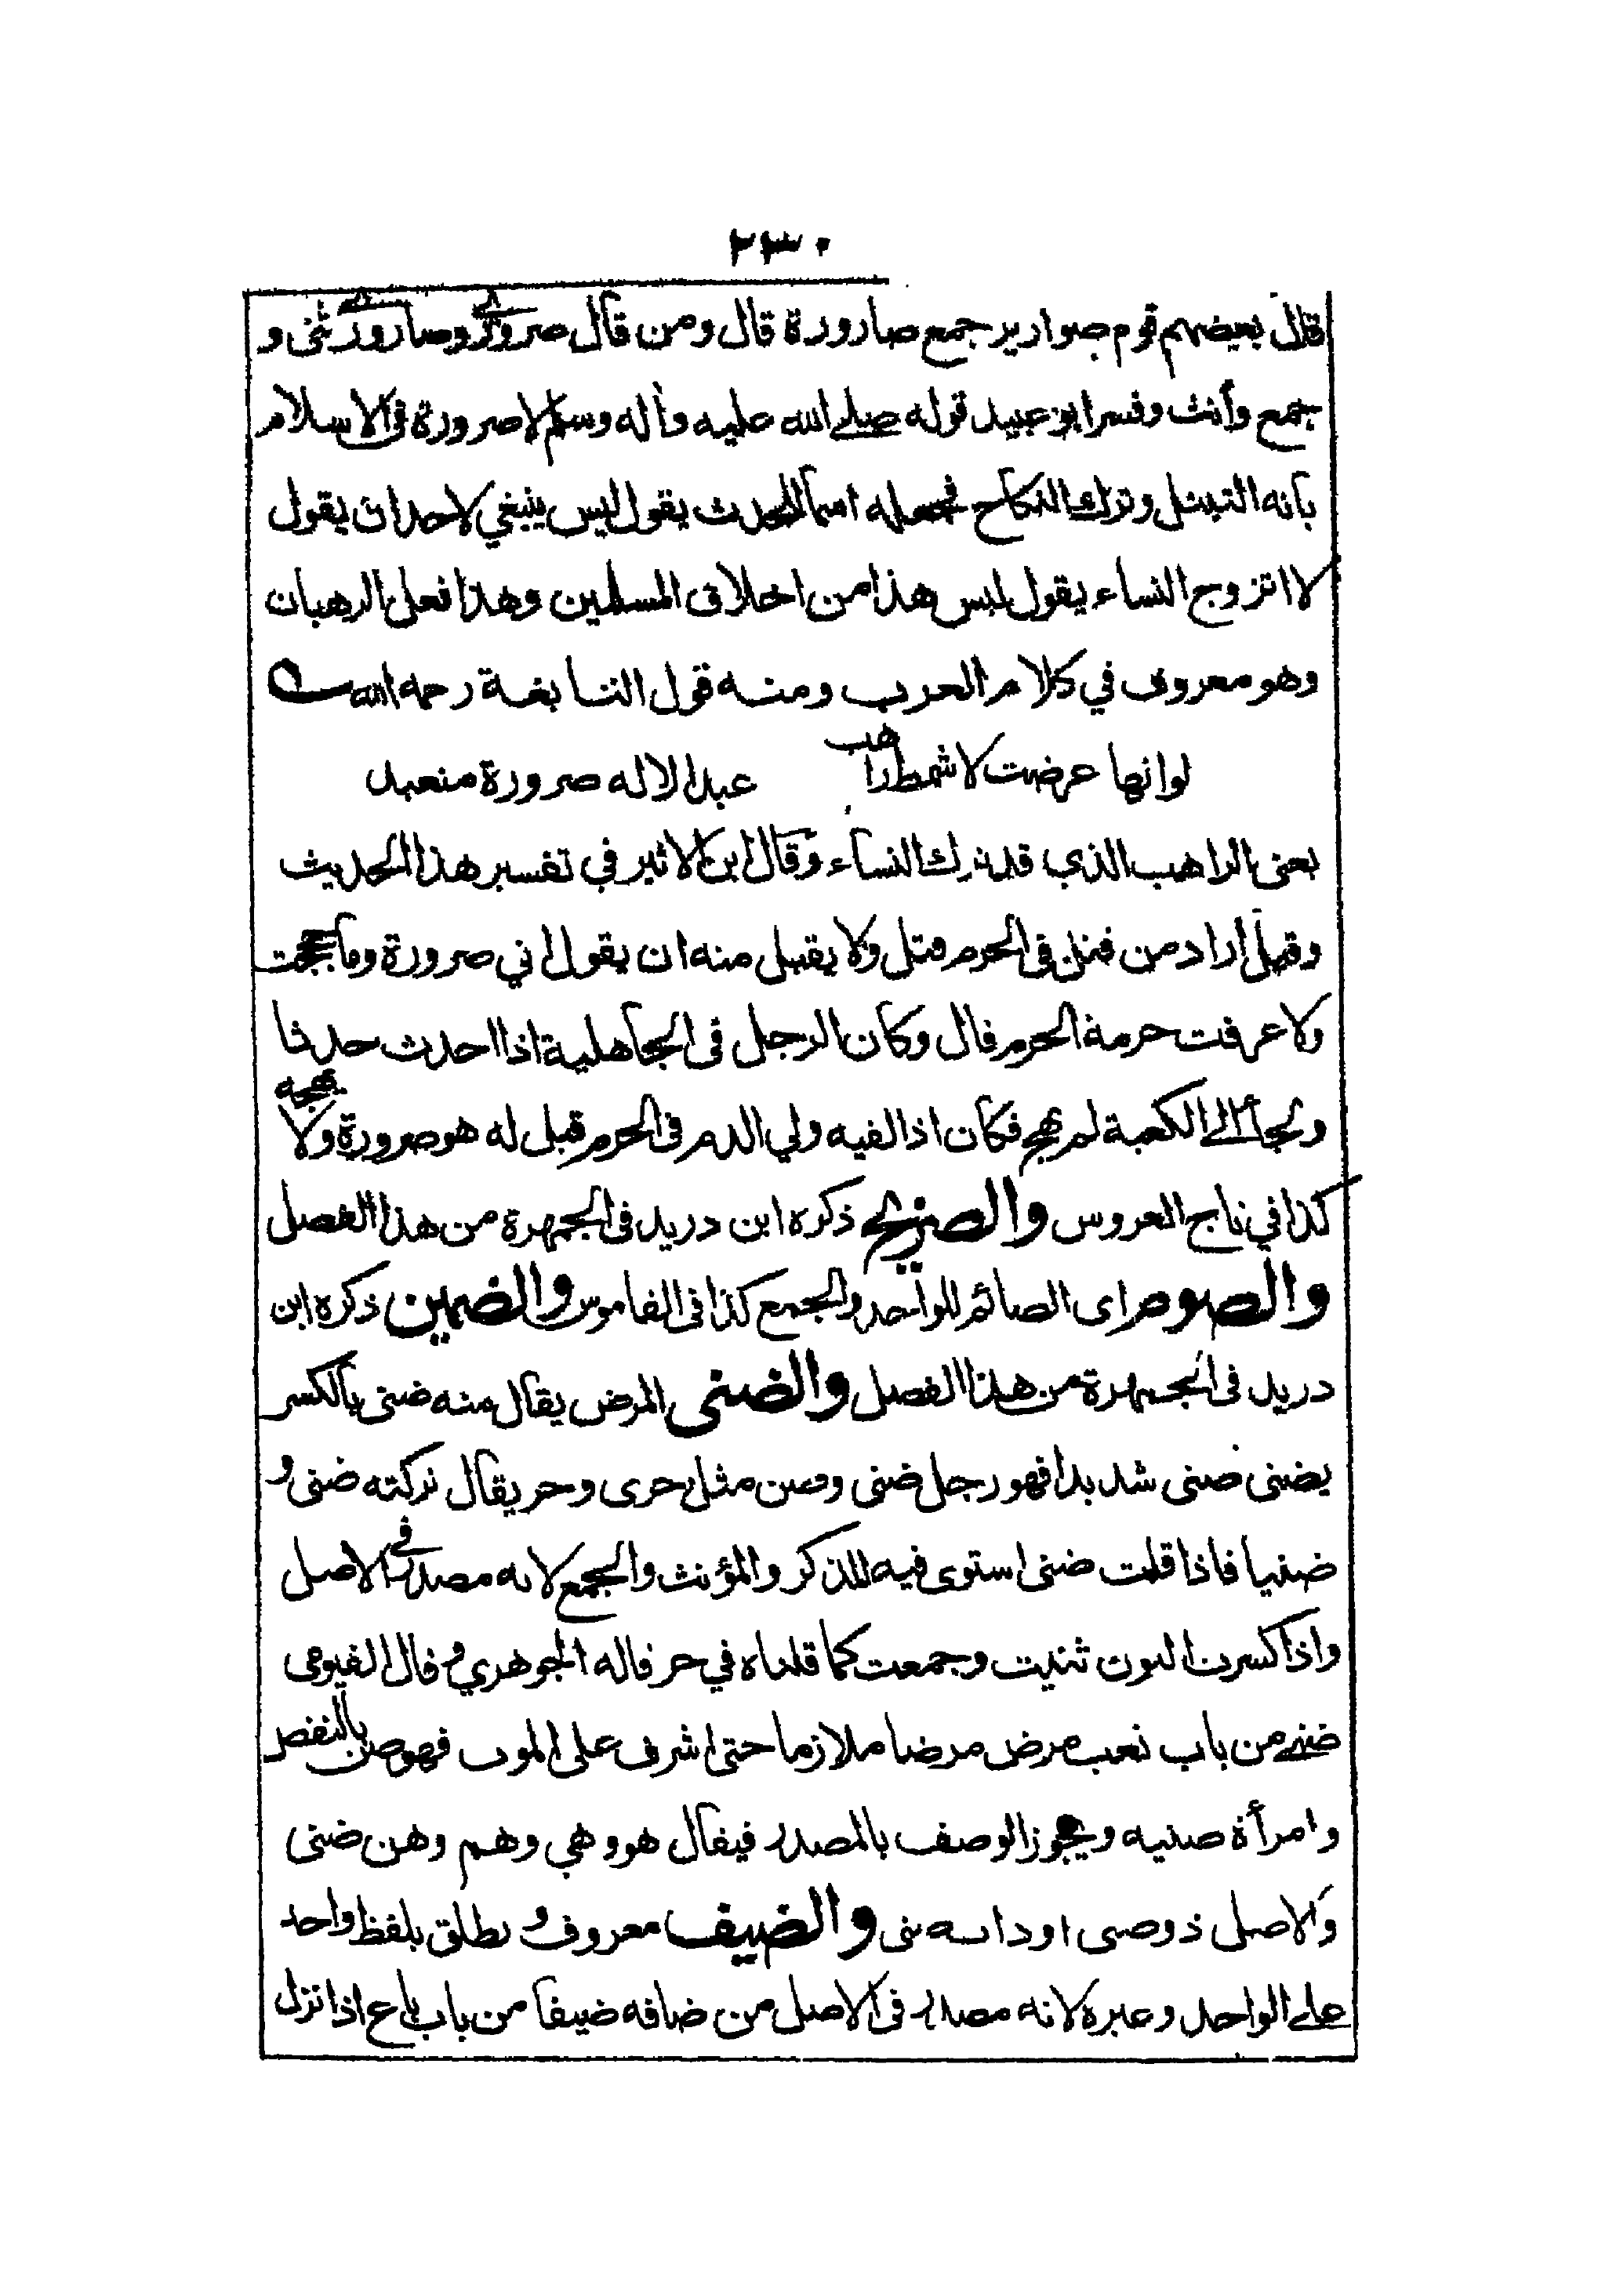 ٢٣٠
قال بعضهم قوم صوارير جمع صارورة قال ومن قال صروري وصاروري ثنى و
جمع وأنث وفسر ابو عبيد قوله صلى الله عليه وآله وسلم لا صرورة في الاسلام
بانه التبتل وترك النكاح فجعله اسما للحدث يقول ليس ينبغي لاحد ان يقول
لا اتزوج النساء يقول ليس هذا من اخلاق المسلمين وهذا فعل الرهبان
وهو معروف في كلام العرب ومنه قول النابغة رحمه الله
لو انها عرضت لاشمط راهب عبد الاله صرورة متعبد
يعنى الراهب الذي قد ترك النساء وقال ابن الاثير في تفسير هذا الحديث
وقيل أراد من قتل في الحرم قتل ولا يقبل منه ان يقول اني صرورة وما حججت
ولا عرفت حرمة الحرم قال وكان الرجل في الجاهلية اذا احدث حدثا
ولجأ الى الكعبة لم يهج فكان اذا لقيه ولي الدم في الحرم قيل له هو صرورة ولا تهجه
كذا في تاج العروس والصريح ذكره ابن دريد في الجمهرة من هذا الفصل
والصوم اى الصائم للواحد والجمع كذا في القاموس والضمين ذكره ابن
دريد في الجمهرة من هذا الفصل والضنى المرض يقال منه ضنى بالكسر
يضنى ضنى شديدا فهو رجل ضنى وضن مثل حرى وحر يقال تركته ضنى و
ضنيا فاذا قلت ضنى استوى فيه المذكر والمؤنث والجمع لانه مصدر في الاصل
واذا كسرت النون ثنيت وجمعت كما قلناه في حر قاله الجوهري وقال الفيومى
ضنى من باب تعب مرض مرضا ملازما حتى اشرف على الموت فهو ضن بالنقص
وامرأة ضنيه ويجوز الوصف بالمصدر فيقال هو وهي وهم وهن ضنى
والاصل ذو ضنى او ذات ضنى والضيف معروف و يطلق بلفظ واحد
على الواحد وغيره لانه مصدر في الاصل من ضافه ضيفا من باب باع اذا نزل